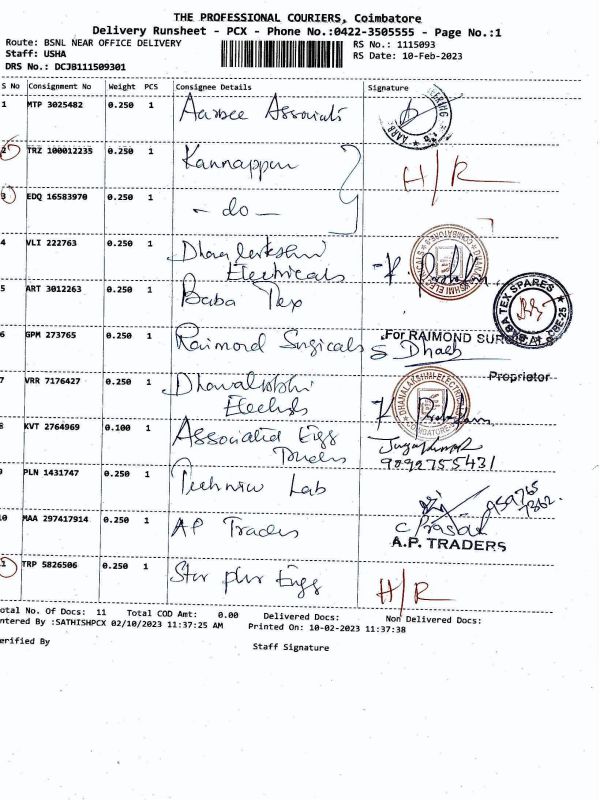 THE PROFESSIONAL COURIERS, Coimbatore
Delivery Runsheet - PCX - Phone No.:0422-3505555 - Page No.:1
Route: BSNL NEAR OFFICE DELIVERY
RS No.: 1115093
Staff: USHA
RS Date: 10-Feb-2023
DRS No.: DCJB111509301
S No Consignment No Weight PCS Consignee Details Signature
1 MTP 3025482 0.250 1 Aarbee Associats
2 TRZ 100012235 0.250 1 Kannappan H/R
3 EDQ 16583970 0.250 1 - do -
4 VLI 222763 0.250 1 Dhanlakshmi
Electricals
5 ART 3012263 0.250 1 Baba Tex
BABA TEX SPARES CBE-25
6 GPM 273765 0.250 1 Raimond Surgicals
For RAIMOND SURGICALS
Proprietor
7 VRR 7176427 0.250 1 Dhanalakshmi
DHANALAKSHMI ELECTRICALS
COIMBATORE
8 KVT 2764969 0.100 1 Associated Engg
Traders
9092755431
9 PLN 1431747 0.250 1 Technico Lab
10 MAA 297417914 0.250 1 AP Traders
A.P. TRADERS
TRP 5826506 0.250 1 Star plus Engg H/R
otal No. Of Docs: 11 Total COD Amt: 0.00 Delivered Docs: Non Delivered Docs:
ntered By :SATHISHPCX 02/10/2023 11:37:25 AM Printed On: 10-02-2023 11:37:38
erified By
Staff Signature